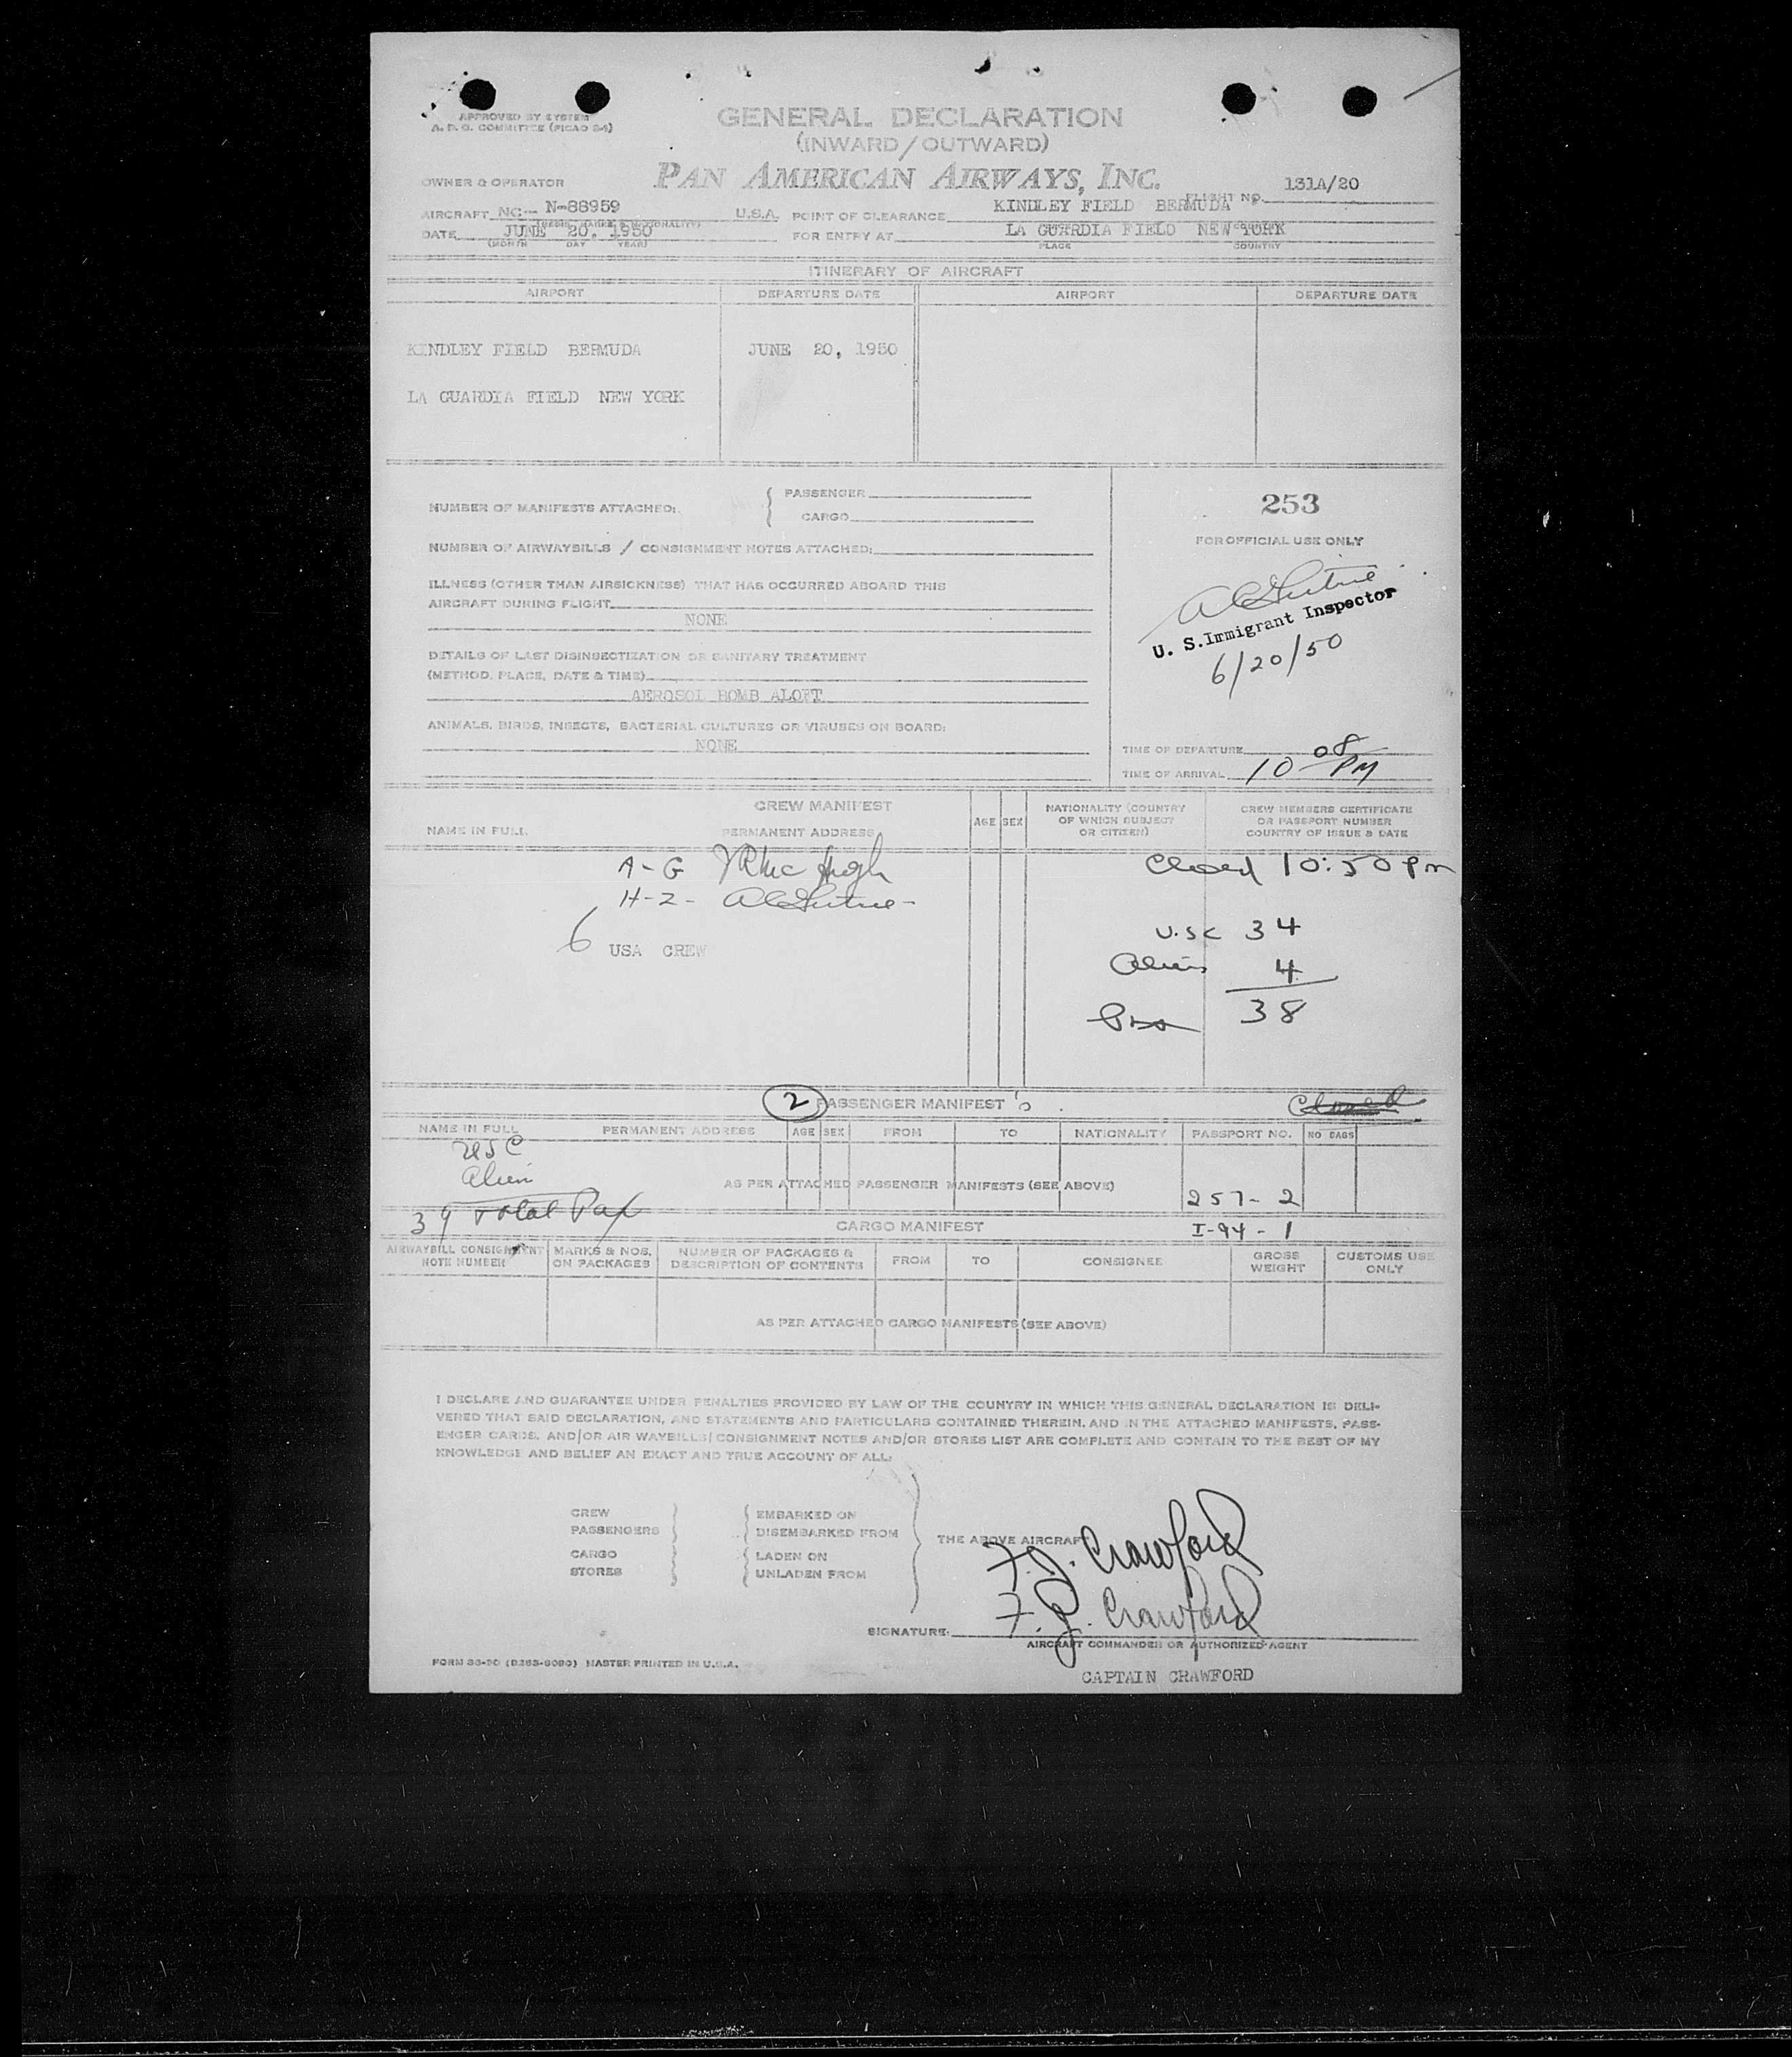 APPROVED BY SYSTEM
A. D. G. COMMITTEE (PICAO 54)
GENERAL DECLARATION
(INWARD/OUTWARD)
OWNER & OPERATOR PAN AMERICAN AIRWAYS, INC.
FLIGHT NO. 131A/20
AIRCRAFT NC- N-88959 U.S.A. POINT OF CLEARANCE KINDLEY FIELD BERMUDA
(REGIS. MARKS & NATIONALITY)
DATE JUNE 20, 1950 FOR ENTRY AT LA GUARDIA FIELD NEW YORK
(MONTH DAY YEAR) PLACE COUNTRY
ITINERARY OF AIRCRAFT
AIRPORT DEPARTURE DATE AIRPORT DEPARTURE DATE
KINDLEY FIELD BERMUDA JUNE 20, 1950
LA GUARDIA FIELD NEW YORK
NUMBER OF MANIFESTS ATTACHED: { PASSENGER
CARGO
253
NUMBER OF AIRWAYBILLS / CONSIGNMENT NOTES ATTACHED:
FOR OFFICIAL USE ONLY
ILLNESS (OTHER THAN AIRSICKNESS) THAT HAS OCCURRED ABOARD THIS
AIRCRAFT DURING FLIGHT
NONE
U. S. Immigrant Inspector
6/20/50
DETAILS OF LAST DISINSECTIZATION OR SANITARY TREATMENT
(METHOD, PLACE, DATE & TIME)
AEROSOL BOMB ALOFT
ANIMALS, BIRDS, INSECTS, BACTERIAL CULTURES OR VIRUSES ON BOARD:
NONE
TIME OF DEPARTURE
TIME OF ARRIVAL 10 08 PM
CREW MANIFEST
NAME IN FULL PERMANENT ADDRESS AGE SEX NATIONALITY (COUNTRY OF WHICH SUBJECT OR CITIZEN) CREW MEMBERS CERTIFICATE OR PASSPORT NUMBER COUNTRY OF ISSUE & DATE
A-G McHugh Closed 10:50 Pm
H-Z-
6 USA CREW
U.SC 34
Aliens 4
38
2 PASSENGER MANIFEST's Closed
NAME IN FULL PERMANENT ADDRESS AGE SEX FROM TO NATIONALITY PASSPORT NO. NO BAGS
USC
Alien
AS PER ATTACHED PASSENGER MANIFESTS (SEE ABOVE)
257-2
39 Total Pax
CARGO MANIFEST I-94-1
AIRWAYBILL CONSIGNMENT NOTE NUMBER MARKS & NOS. ON PACKAGES NUMBER OF PACKAGES & DESCRIPTION OF CONTENTS FROM TO CONSIGNEE GROSS WEIGHT CUSTOMS USE ONLY
AS PER ATTACHED CARGO MANIFESTS (SEE ABOVE)
I DECLARE AND GUARANTEE UNDER PENALTIES PROVIDED BY LAW OF THE COUNTRY IN WHICH THIS GENERAL DECLARATION IS DELI-
VERED THAT SAID DECLARATION, AND STATEMENTS AND PARTICULARS CONTAINED THEREIN, AND IN THE ATTACHED MANIFESTS, PASS-
ENGER CARDS, AND/OR AIR WAYBILLS/ CONSIGNMENT NOTES AND/OR STORES LIST ARE COMPLETE AND CONTAIN TO THE BEST OF MY
KNOWLEDGE AND BELIEF AN EXACT AND TRUE ACCOUNT OF ALL:
CREW EMBARKED ON
PASSENGERS DISEMBARKED FROM
THE ABOVE AIRCRAFT
CARGO LADEN ON
STORES UNLADEN FROM
F.J. Crawford
F.J. Crawford
SIGNATURE:
AIRCRAFT COMMANDER OR AUTHORIZED AGENT
MASTER PRINTED IN U.S.A.
CAPTAIN CRAWFORD